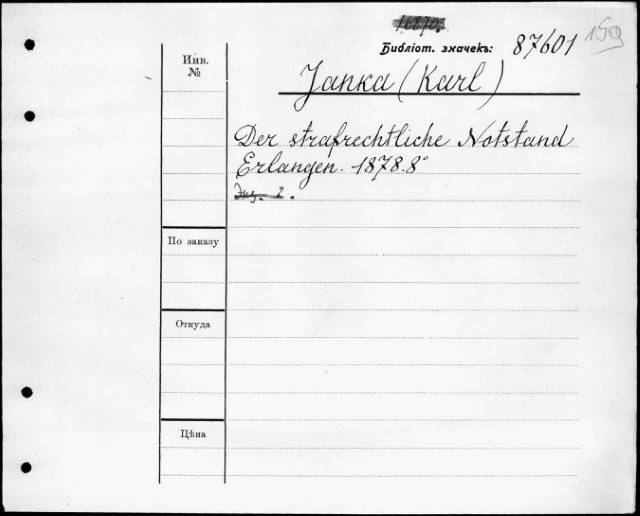 16870.
Библіот. значекъ: 87601
159
Инв.
№
Janka (Karl)
Der strafrechtliche Notstand
Erlangen. 1878. 8°
По заказу
Откуда
Цѣна